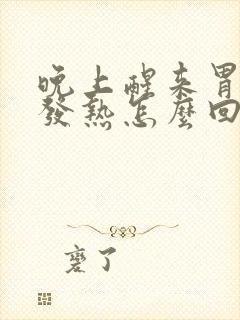 晚上醒来胃
發熱怎麼回
麼了